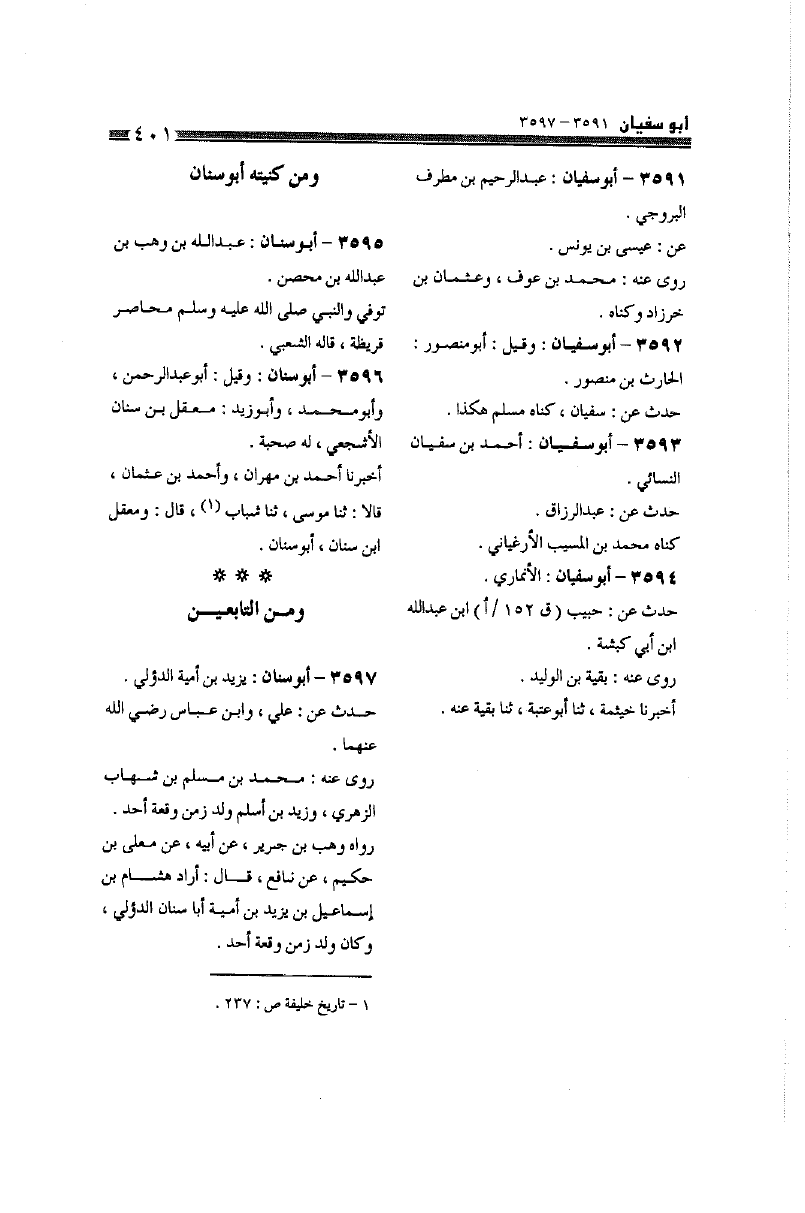 أبو سفيان ٣٥٩١ – ٣٥٩٧
٤٠١
٣٥٩١ – أبو سفيان : عبدالرحيم بن مطرف
البروجي .
عن : عيسى بن يونس .
روى عنه : محمد بن عوف ، وعثمان بن
خرزاد وكناه .
٣٥٩٢ – أبو سفيان : وقيل : أبو منصور :
الحارث بن منصور .
حدث عن : سفيان ، كناه مسلم هكذا .
٣٥٩٣ – أبو سفيان : أحمد بن سفيان
النسائي .
حدث عن : عبدالرزاق .
كناه محمد بن المسيب الأرغياني .
٣٥٩٤ – أبو سفيان : الأنماري .
حدث عن : حبيب ( ق ١٥٢ / أ ) ابن عبدالله
ابن أبي كبشة .
روى عنه : بقية بن الوليد .
أخبرنا خيثمة ، ثنا أبو عتبة ، ثنا بقية عنه .
ومن كنيته أبو سنان
٣٥٩٥ – أبو سنان : عبدالله بن وهب بن
عبدالله بن محصن .
توفي والنبي صلى الله عليه وسلم محاصر
قريظة ، قاله الشعبي .
٣٥٩٦ – أبو سنان : وقيل : أبو عبدالرحمن ،
وأبو محمد ، وأبو زيد : معقل بن سنان
الأشجعي ، له صحبة .
أخبرنا أحمد بن مهران ، وأحمد بن عثمان ،
قالا : ثنا موسى ، ثنا شباب (١) ، قال : ومعقل
ابن سنان ، أبو سنان .
* * *
ومن التابعين
٣٥٩٧ – أبو سنان : يزيد بن أمية الدؤلي .
حدث عن : علي ، وابن عباس رضي الله
عنهما .
روى عنه : محمد بن مسلم بن شهاب
الزهري ، وزيد بن أسلم ولد زمن وقعة أحد .
رواه وهب بن جرير ، عن أبيه ، عن معلى بن
حكيم ، عن نافع ، قال : أراد هشام بن
إسماعيل بن يزيد بن أمية أبا سنان الدؤلي ،
وكان ولد زمن وقعة أحد .
١ – تاريخ خليفة ص : ٢٣٧ .